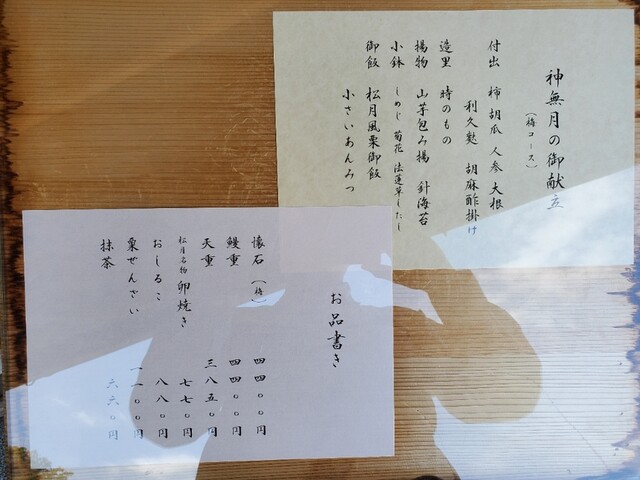 神無月の御献立
(梅コース)
付出 柿 胡瓜 人参 大根
利久麩 胡麻酢掛け
造里 時のもの
揚物 山芋包み揚 針海苔
小鉢 しめじ 菊花 法蓮草したし
御飯 松月風栗御飯
小さいあんみつ
お品書き
懐石(梅) 四四〇〇円
鰻重 四四〇〇円
天重 三八五〇円
松月名物 卵焼き 七七〇円
おしるこ 八八〇円
栗ぜんざい 一一〇〇円
抹茶 六六〇円